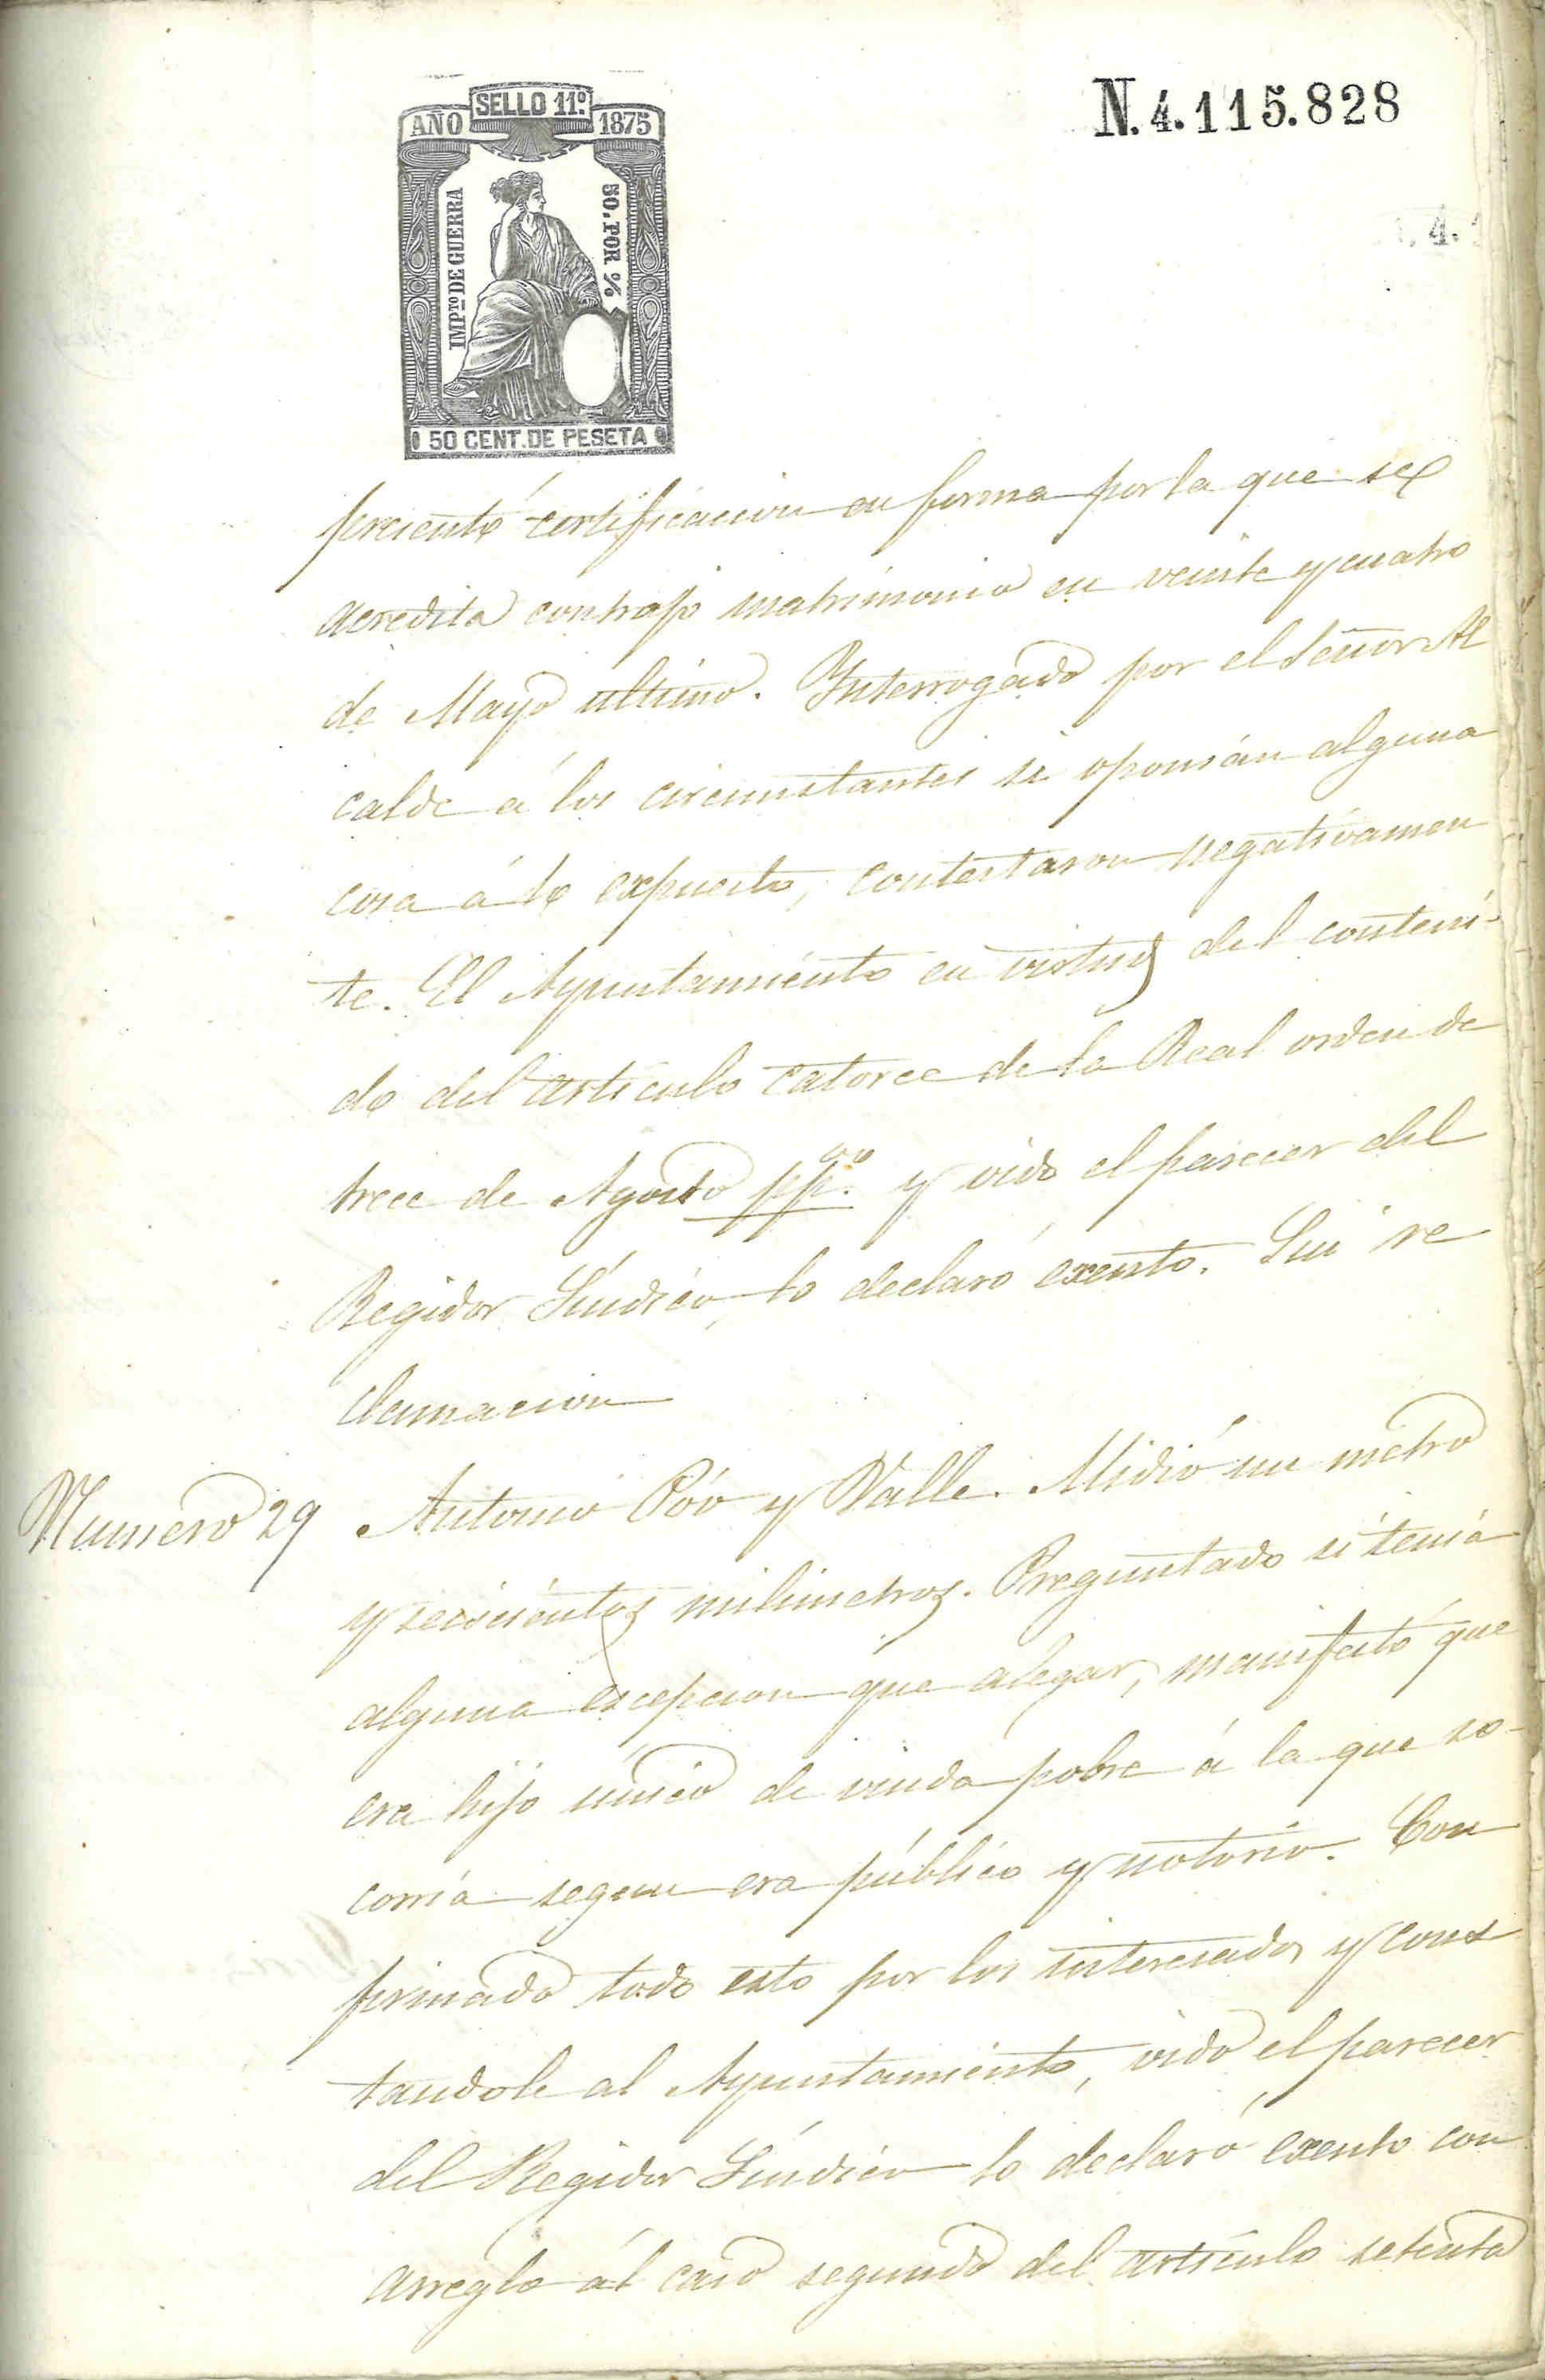 SELLO 11º
AÑO 1875
IMPTO DE GUERRA
50. POR %
50 CENT. DE PESETA
N. 4.115.828
4.
presentó certificacion en forma por la que se
acredita contrajo matrimonio en veinte y cuatro
de Mayo ultimo. Interrogado por el Señor Al
calde á los circunstantes si oponian alguna
cosa á lo expuesto, contestaron negativamen
te. El Ayuntamiento en virtud del conteni-
do del articulo catorce de la Real orden de
trece de Agosto pp.º y oido el parecer del
Regidor Síndico, lo declaró exento. Sin re
clamacion
Numero 29 Antonio Póo y Valle. Midió un metro
y seiscientos milimetros. Preguntado si tenia
alguna escepcion que alegar, manifestó que
era hijo único de viuda pobre á la que so-
corria segun era público y notorio. Con
firmado todo esto por los interesados y cons
tandole al Ayuntamiento, oido el parecer
del Regidor Síndico lo declaró exento con
arreglo al caso segundo del artículo setenta